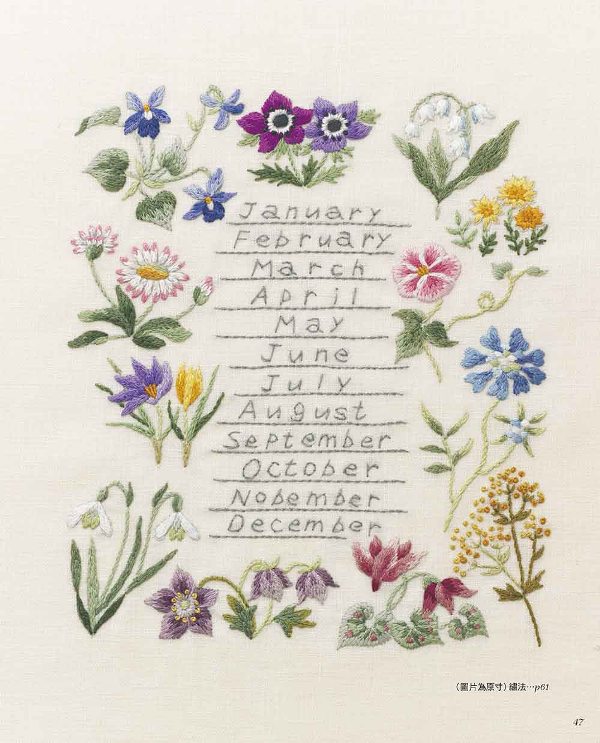 January
February
March
April
May
June
July
August
September
October
Nobember
December
(圖片為原寸) 繡法…p61
47